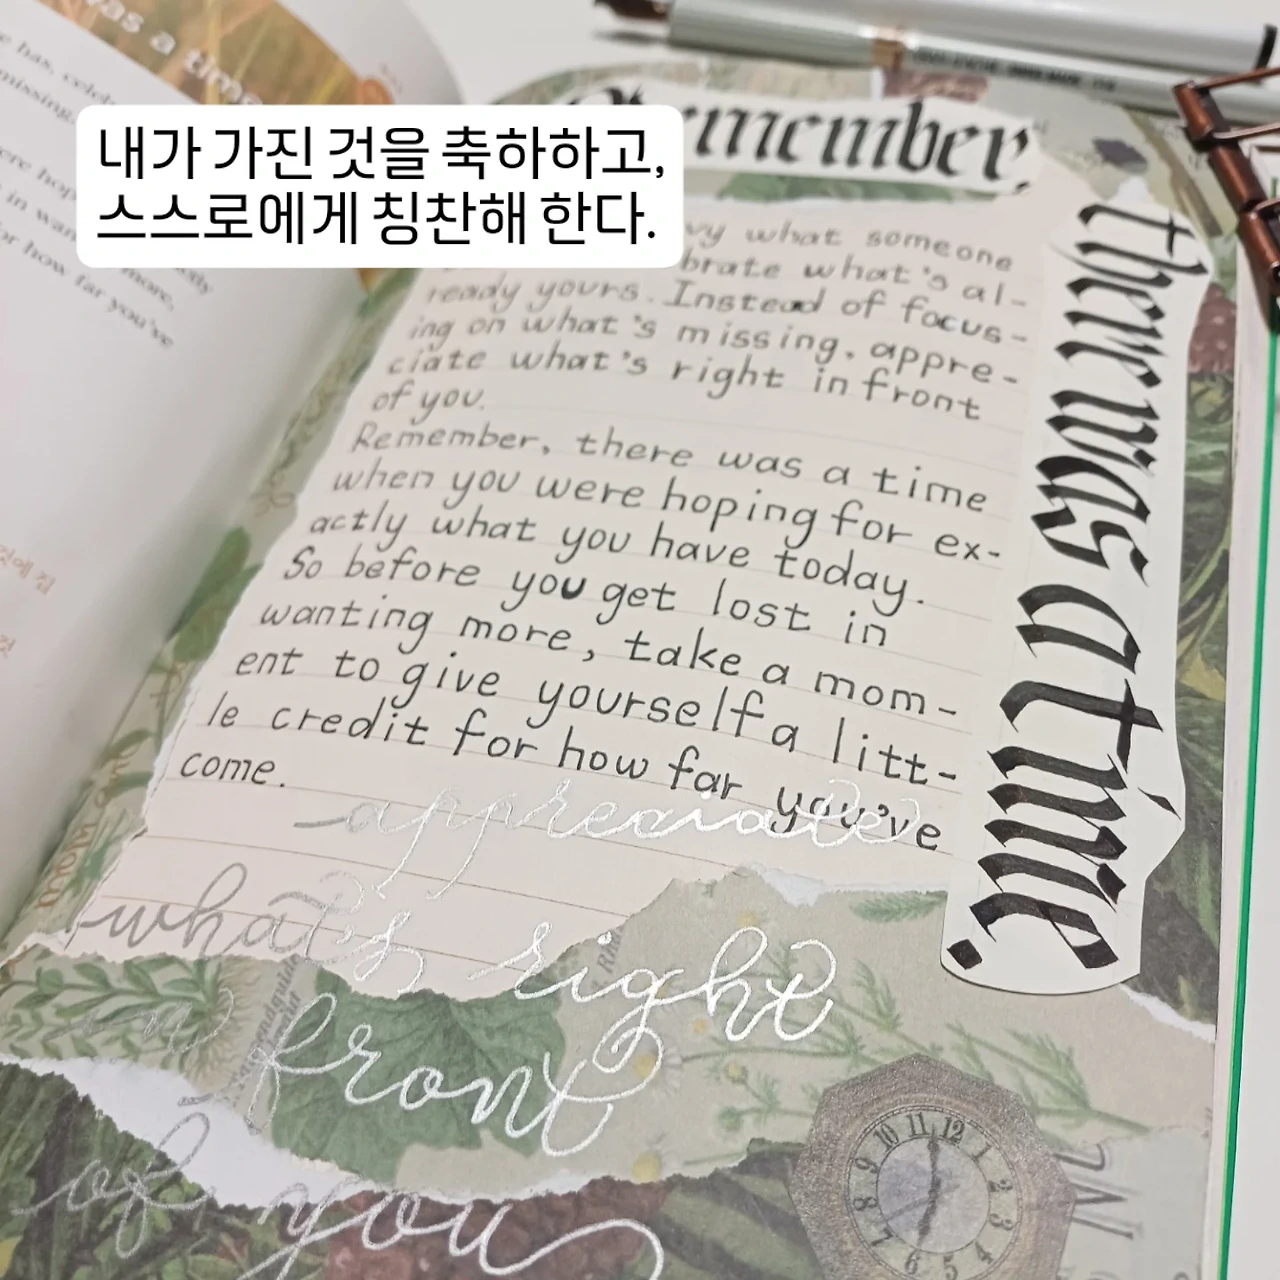 was a time
e has, celeb
missing,
ere hop
in wan
more,
for how far you've
것에 집
것
내가 가진 것을 축하하고,
스스로에게 칭찬해 한다.
Remember,
there was a time.
vy what someone
brate what's al-
ready yours. Instead of focus-
ing on what's missing, appre-
ciate what's right in front
of you.
Remember, there was a time
when you were hoping for ex-
actly what you have today.
So before you get lost in
wanting more, take a mom-
ent to give yourself a litt-
le credit for how far you've
come.
appreciate
what's right
in front
of you
10 11 12
9 1
8 2
7 3
6 5 4